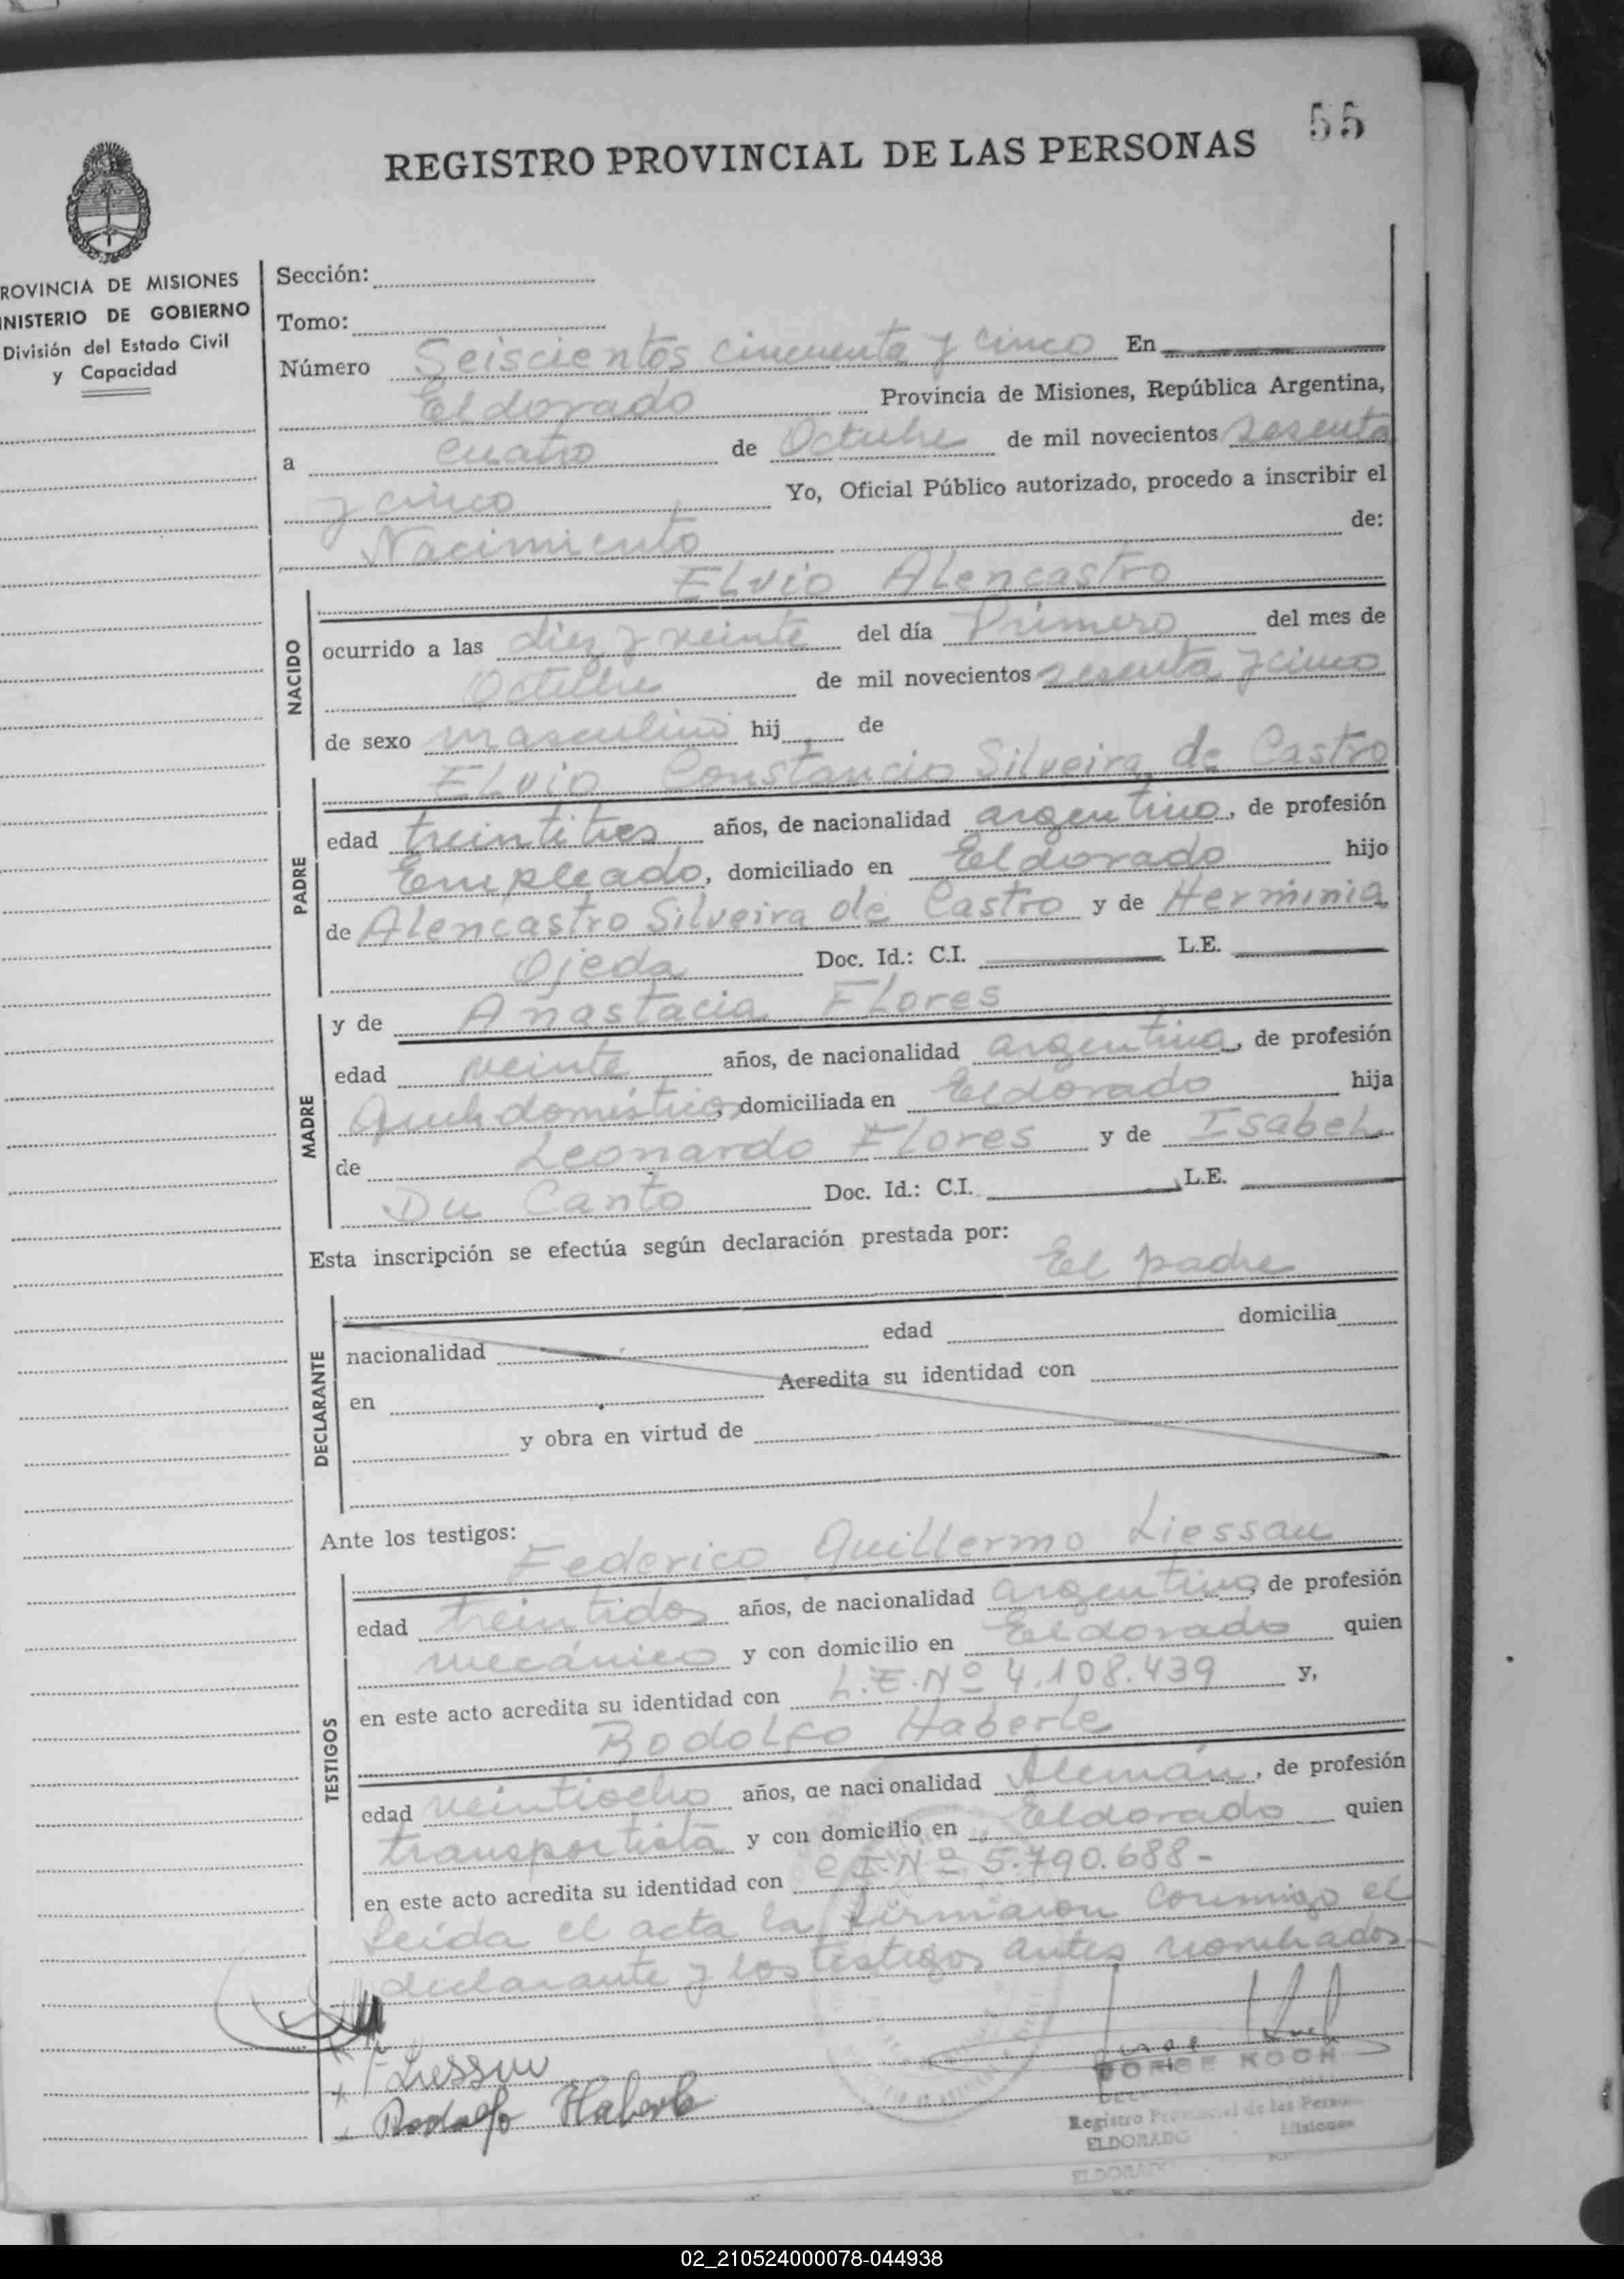 55
REGISTRO PROVINCIAL DE LAS PERSONAS
ROVINCIA DE MISIONES
INISTERIO DE GOBIERNO
División del Estado Civil
y Capacidad
Sección:
Tomo:
Número Seiscientos cincuenta y cinco En
Eldorado Provincia de Misiones, República Argentina,
a cuatro de Octubre de mil novecientos sesenta
y cinco Yo, Oficial Público autorizado, procedo a inscribir el
Nacimiento de:
NACIDO
Elvio Alencastro
ocurrido a las diez y veinte del día Primero del mes de
Octubre de mil novecientos sesenta y cinco
de sexo masculino hij de
PADRE
Elvio Constancio Silveira de Castro
edad treintitres años, de nacionalidad argentino, de profesión
Empleado, domiciliado en Eldorado hijo
de Alencastro Silveira de Castro y de Herminia
Ojeda Doc. Id.: C.I. L.E.
MADRE
y de Anastacia Flores
edad veinte años, de nacionalidad argentina, de profesión
domiciliada en Eldorado hija
de Leonardo Flores y de Isabel
Du Canto Doc. Id.: C.I. L.E.
Esta inscripción se efectúa según declaración prestada por:
El padre
DECLARANTE
nacionalidad edad domicilia
en Acredita su identidad con
y obra en virtud de
Ante los testigos:
Federico Guillermo Liessau
TESTIGOS
edad treintidos años, de nacionalidad argentino, de profesión
mecánico y con domicilio en Eldorado quien
en este acto acredita su identidad con L.E.Nº 4.108.439 y,
Rodolfo Haberle
edad veintiocho años, de nacionalidad Alemán, de profesión
transportista y con domicilio en Eldorado quien
en este acto acredita su identidad con C.I.Nº 5.790.688-
Leída el acta la firmaron conmigo el
declarante y los testigos antes nombrados-
Rodolfo Haberle
JORGE KOCH
Registro Provincial de las Perso
ELDORADO Misiones
ELDORADO
02_210524000078-044938